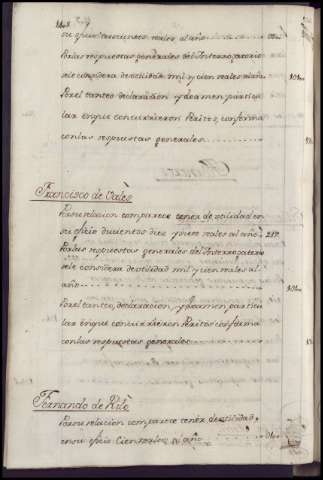 su oficio trescientos reales al año
Por las respuestas generales del Interrogatorio
se le considera de utilidad mil y cien reales al año
Por el tanteo declaracion y examen particu
lar en que concurrieron Peritos, conforma
con las respuestas generales
Francisco de Vales
Por su relacion comparece tener de utilidad en
su oficio ducientos diez y siete reales al año 217
Por las respuestas generales del Interrogatorio
se le considera de utilidad mil y cien reales al
año
Por el tanteo, declaracion, y examen particu
lar en que concurrieron Peritos conforma
con las respuestas generales
Fernando de
Por su relacion comparece tener de utilidad
en su oficio Cien reales al año